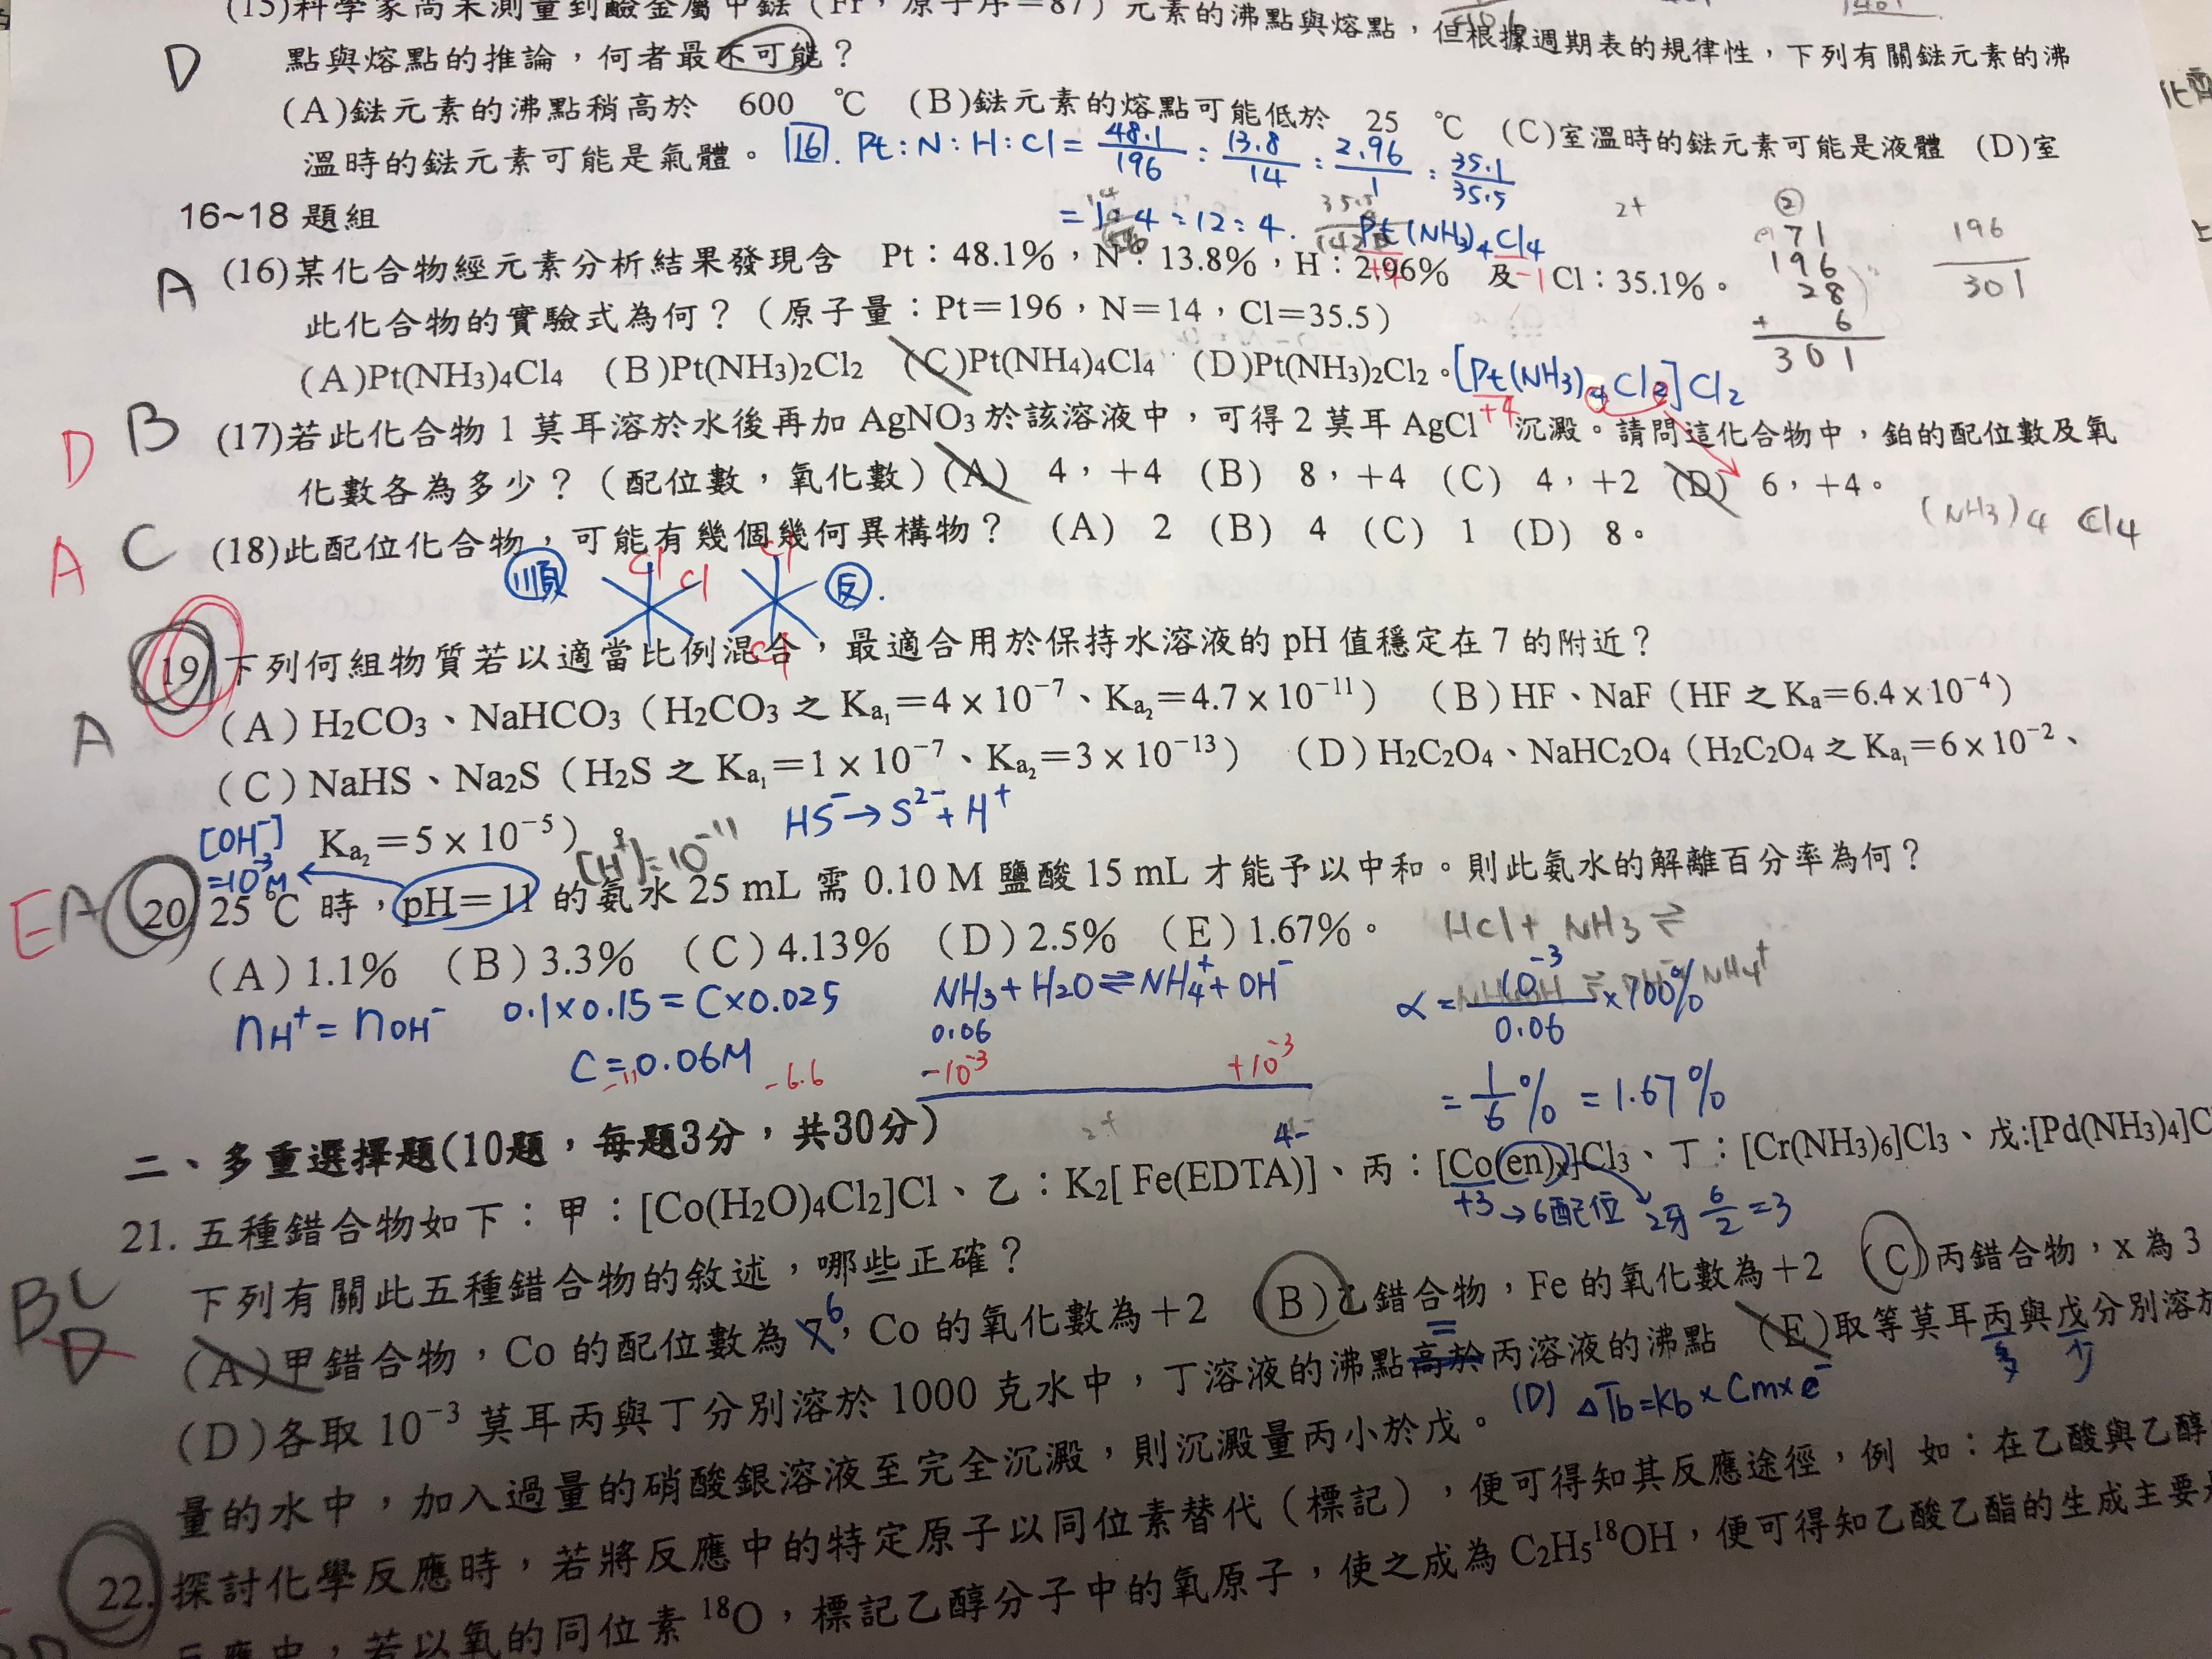 (15)科學家尚未測量到鹼金屬中鍅（Fr，原子序＝87）元素的沸點與熔點，但根據週期表的規律性，下列有關鍅元素的沸
D 點與熔點的推論，何者最不可能？
(A)鍅元素的沸點稍高於 600 ℃ (B)鍅元素的熔點可能低於 25 ℃ (C)室溫時的鍅元素可能是液體 (D)室
溫時的鍅元素可能是氣體。
16. Pt:N:H:Cl = 48.1/196 : 13.8/14 : 2.96/1 : 35.1/35.5
= 1:4:12:4. Pt(NH3)4Cl4
+4 -1
2+
②
71
196
28
+ 6
301
196
301
16~18 題組
A (16)某化合物經元素分析結果發現含 Pt：48.1%，N：13.8%，H：2.96% 及 Cl：35.1%。
此化合物的實驗式為何？（原子量：Pt＝196，N＝14，Cl＝35.5）
(A)Pt(NH3)4Cl4 (B)Pt(NH3)2Cl2 (C)Pt(NH4)4Cl4 (D)Pt(NH3)2Cl2。
[Pt(NH3)4Cl2]Cl2
+4
D B (17)若此化合物 1 莫耳溶於水後再加 AgNO3 於該溶液中，可得 2 莫耳 AgCl 沉澱。請問這化合物中，鉑的配位數及氧
化數各為多少？（配位數，氧化數）(A) 4，+4 (B) 8，+4 (C) 4，+2 (D) 6，+4。
(NH3)4 Cl4
A C (18)此配位化合物，可能有幾個幾何異構物？ (A) 2 (B) 4 (C) 1 (D) 8。
順 Cl Cl Cl Cl 反.
19 下列何組物質若以適當比例混合，最適合用於保持水溶液的 pH 值穩定在 7 的附近？
A (A) H2CO3、NaHCO3（H2CO3 之 Ka1＝4 × 10⁻⁷、Ka2＝4.7 × 10⁻¹¹） (B) HF、NaF（HF 之 Ka＝6.4 × 10⁻⁴）
(C) NaHS、Na2S（H2S 之 Ka1＝1 × 10⁻⁷、Ka2＝3 × 10⁻¹³） (D) H2C2O4、NaHC2O4（H2C2O4 之 Ka1＝6 × 10⁻²、
Ka2＝5 × 10⁻⁵）。
HS⁻→S²⁻+H⁺
[OH⁻]
=10⁻³M
[H⁺]=10⁻¹¹
E A 20 25 ℃ 時，pH＝11 的氨水 25 mL 需 0.10 M 鹽酸 15 mL 才能予以中和。則此氨水的解離百分率為何？
(A) 1.1% (B) 3.3% (C) 4.13% (D) 2.5% (E) 1.67%。
HCl + NH3 ⇌
nH⁺ = nOH⁻ 0.1×0.15 = C×0.025
C = 0.06M
-11 -6.6
NH3 + H2O ⇌ NH4⁺ + OH⁻
0.06
-10⁻³ +10⁻³
α = 10⁻³/0.06 × 100%
= 1/6 % = 1.67%
二、多重選擇題(10題，每題3分，共30分)
21. 五種錯合物如下：甲：[Co(H2O)4Cl2]Cl、乙：K2[ Fe(EDTA)]、丙：[Co(en)x]Cl3、丁：[Cr(NH3)6]Cl3、戊:[Pd(NH3)4]C
4-
+3 →6配位 2牙 6/2 = 3
下列有關此五種錯合物的敘述，哪些正確？
BC D
(A)甲錯合物，Co 的配位數為 7，Co 的氧化數為＋2 (B)乙錯合物，Fe 的氧化數為＋2 (C)丙錯合物，x 為 3
6
(D)各取 10⁻³ 莫耳丙與丁分別溶於 1000 克水中，丁溶液的沸點高於丙溶液的沸點 (E)取等莫耳丙與戊分別溶於
= 多 少
量的水中，加入過量的硝酸銀溶液至完全沉澱，則沉澱量丙小於戊。
(D) ΔTb=kb×Cm×e⁻
22. 探討化學反應時，若將反應中的特定原子以同位素替代（標記），便可得知其反應途徑，例 如：在乙酸與乙醇
反應中，若以氧的同位素 ¹⁸O，標記乙醇分子中的氧原子，使之成為 C2H5¹⁸OH，便可得知乙酸乙酯的生成主要是